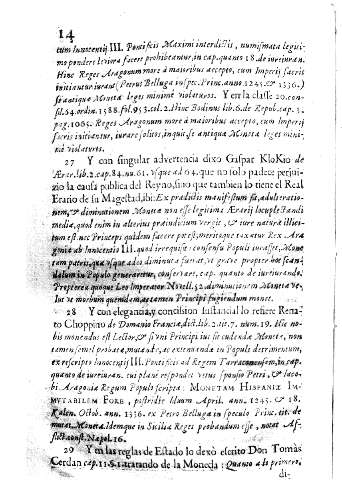 14
tum Innocentij III. Pontificis Maximi interdictis, numismata legiti-
mo pondere leviora facere prohibebantur, in cap. quanto 18. de iureiuran.
Hinc Reges Aragonum more à maioribus accepto, cum Imperij sacris
initiantur iurant Petrus Belluga in spec. Princ. anno 1245. & 1336.)
se antiqua Moneta leges minimè violaturos. Y en la classe 20. con-
sil. 64. ordin. 1588. fol. 953. col. 2. Ihoc Bodinus lib. 6. de Repub. cap. 3.
pag. 1065. Reges Aragonum more à maioribus accepto, cum Imperij
sacris initiantur, iurare solitos, inquit se antiqua Moneta leges mini-
mè violaturos.
27 Y con singular advertencia dixo Gaspar KloKio de
Ærar. lib. 2. cap. 84. nu. 61. Vsque ad 64. que no solo padece perjui-
zio la causa publica del Reyno, sino que tambien lo tiene el Real
Erario de su Magestad, ibi: Ex prædictis manifestum sit, adulteratio-
nem, & diminutionem Monetæ non esse legitima Ærarij locupletandi
media, quod enim in alterius præiudicium vergit, & iure naturâ illici-
tum est nec Principi quidem facere potest, meritoque taxatur Rex Ara-
goniæ ab Innocentio III. quod irrequisito consensu Populi iurasset, Mone-
tam patris, quæ usque adeo diminuta fuerat, ut grave propter hoc scan-
dalum in Populo generaretur, conservare, cap. quanto de iureiurando.
Propterea quoque Leo Imperator Novell. 52. diminutionem Monetæ ve-
lut ex moribum quemdam, ac tamen Principi fugiendum monet.
28 Y con elegancia, y concision sustancial lo refiere Rena-
to Choppino de Domanio Franciæ, dict. lib. 2. tit. 7. num. 19. Hic no-
bis monendus est Lector, & si uni Principi ius sit cudendæ Monetæ, non
tamen semel probatæ, mutandæ, ac extenuandæ in Populi detrimentum,
ex rescripto Innocentij III. Pontificis ad Regem Tarraconensem, in cap.
quanto de iureiuran. cui planè respondet vetus sponsio Petri, & Iaco-
bi Aragoniæ Regum Populo scripta: MONETAM HISPANIÆ IM-
MVTABILEM FORE, postridie Iduum April. ann. 1245. & 18.
Kalen. Octob. ann. 1336. ex Petro Belluga in speculo Princ. tit. de
mutat. Monetæ. Idemque in Sicilia Reges probandum esse, notat Af-
flict. const. Neapol. 16.
29 Y en las reglas de Estado lo dexò escrito Don Tomàs
Cerdan cap. 11. §. 1. tratando de la Moneda: Quanto a lo primero,
di-